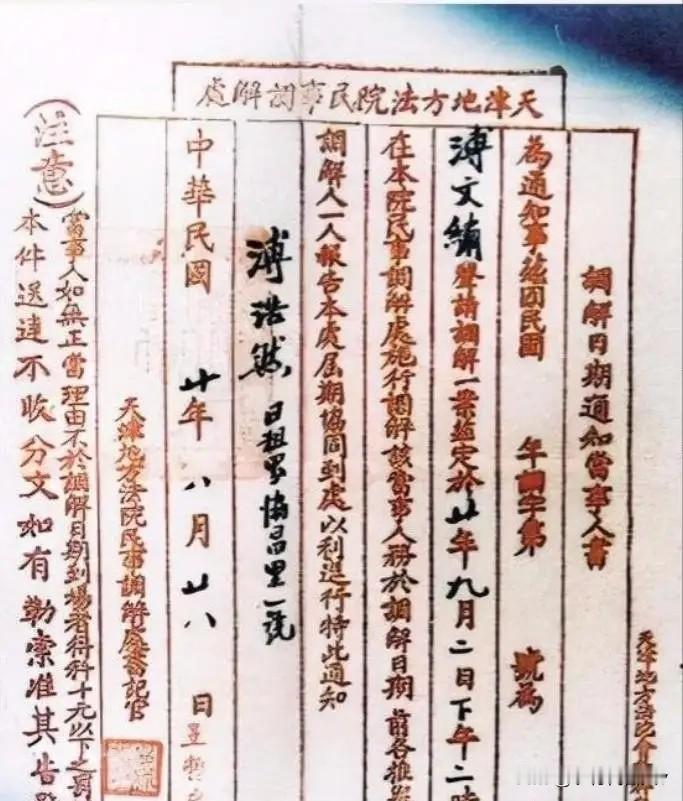 天津地方法院民事調解處
調解日期通知當事人書
為通知事茲因民國 年調字第 號為
溥文繡聲請調解一案茲定於廿年九月二日下午二時
在本院民事調解處施行調解該當事人務於調解日期前各推舉
調解人一人報告本處屆期協同到處以利進行特此通知
溥浩然 日租界協昌里一號
中華民國 廿年 八月 廿八 日
天津地方法院民事調解處書記官
(注意)
當事人如無正當理由不於調解日期到場者得科十元以下之
本件送達不收分文如有勒索准其告發
天津地方法院